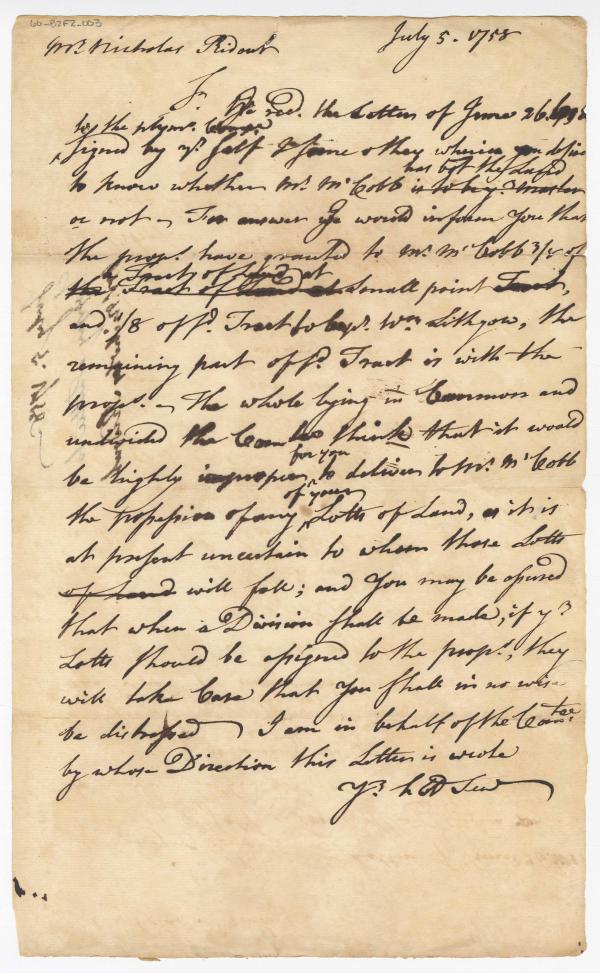 60-82F2-003
Mr. Nicholas Ridout July 5. 1758
Sr. We recd. the Letter of June 26.
to the plymo. Comp.
signed by yr. self & some others wherein you desire
has bot the Land
to know whether Mr. McCobb is to be yr. Master
or not — For answer We would inform You that
the propr. have granted to Mr. McCobb 3/8 of
a Tract of Land at
the Tract of Land at Small point Tract,
and 1/8 of sd. Tract to Capt. Wm. Lithgow, the
remaining part of sd. Tract is with the
propr. — The whole lying in Common and
undivided the Comtee think that it would
for you
be highly improper to deliver to Mr. McCobb
of your
the possession of any Lotts of Land, as it is
at present uncertain to whom those Lotts
of Land will fall; and You may be assured
that when a Division shall be made, if yr.
Lotts should be assigned to the propr., they
will take Care that You shall in no wise
be distressed I am in behalf of the Comtee.
by whose Direction this Letter is wrote
Yr. h Servt
July 5. 1758